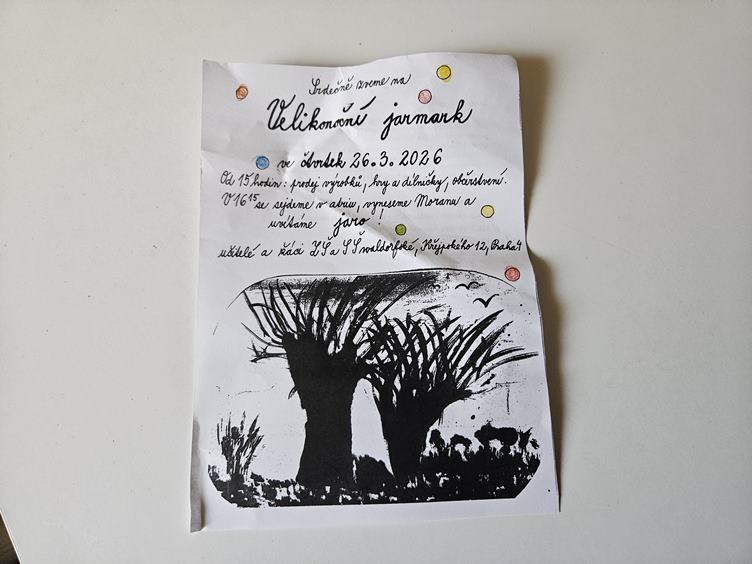 Srdečně zveme na
Velikonoční jarmark
ve čtvrtek 26.3.2026
Od 15 hodin: prodej výrobků, hry a dílničky, občerstvení.
V 16¹⁵ se sejdeme v atriu, vyneseme Moranu a
uvítáme jaro!
učitelé a žáci ZŠ a SŠ waldorfské, Křejpského 12, Praha 4